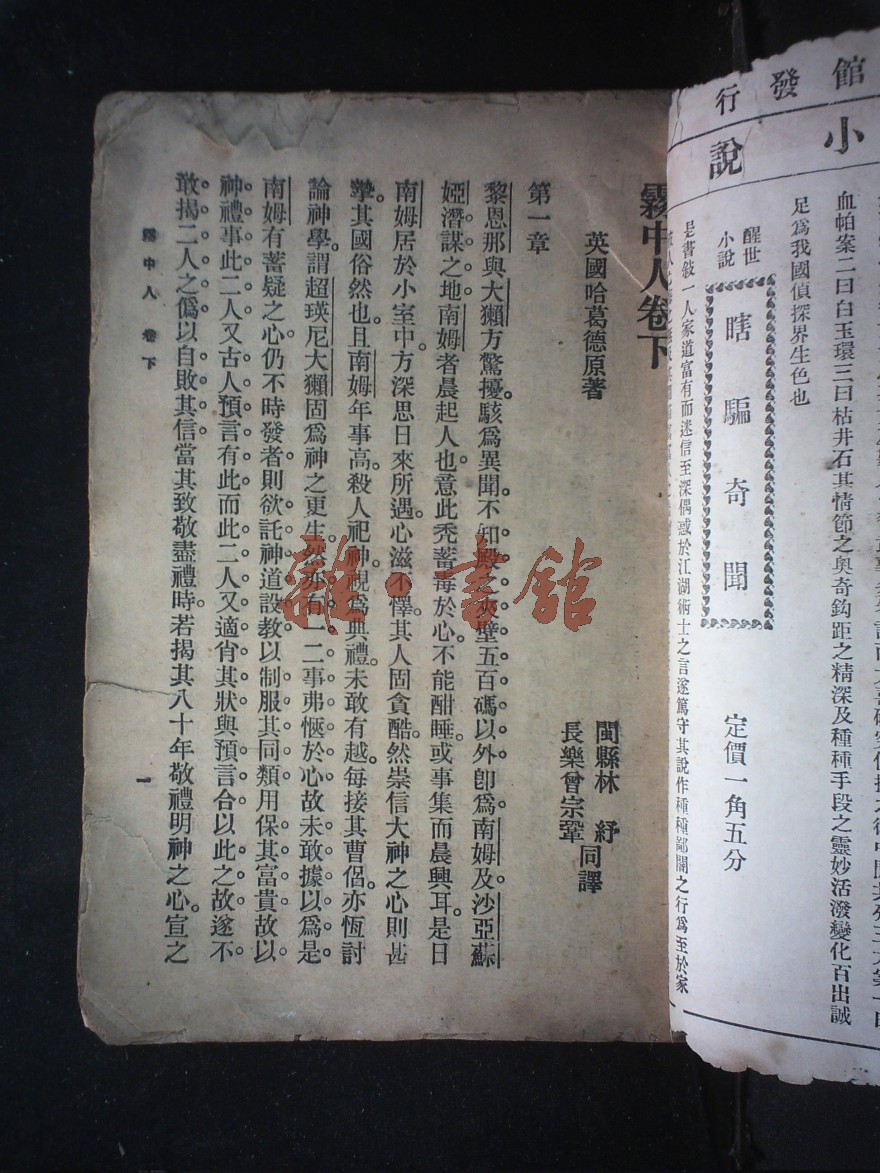 館發行
小說
血帕案二曰白玉環三曰枯井石其情節之奧奇鈎距之精深及種種手段之靈妙活潑變化百出誠
足爲我國偵探界生色也
醒世小說
瞎騙奇聞
定價一角五分
是書敍一人家道富有而迷信至深偶或於江湖術士之言遂篤守其說作種種鄙陋之行爲至於家
霧中人卷下
英國哈葛德原著
閩縣林紓
長樂曾宗鞏
同譯
第一章
黎恩那與大獺方驚擾駭爲異聞不知殿之夾壁五百碼以外卽爲南姆及沙亞蘇
婭潛謀之地南姆者晨起人也意此禿蓄毒於心不能酣睡或事集而晨興耳。是日
南姆居於小室中方深思日來所遇心滋不懌其人固貪酷然崇信大神之心則甚
摯其國俗然也。且南姆年事高。殺人祀神。視爲典禮。未敢有越。每接其曹侶。亦恆討
論神學。謂超瑛尼大獺固爲神之更生。然亦有一二事弗愜於心故未敢據以爲是
南姆有蓄疑之心仍不時發者則欲託神道設教以制服其同類用保其富貴故以
神禮事此二人又古人預言有此而此二人又適肖其狀與預言合以此之故遂不
敢揭二人之僞以自敗其信當其致敬盡禮時。若揭其八十年敬禮明神之心宣之
霧中人 卷下
一
雜·書館